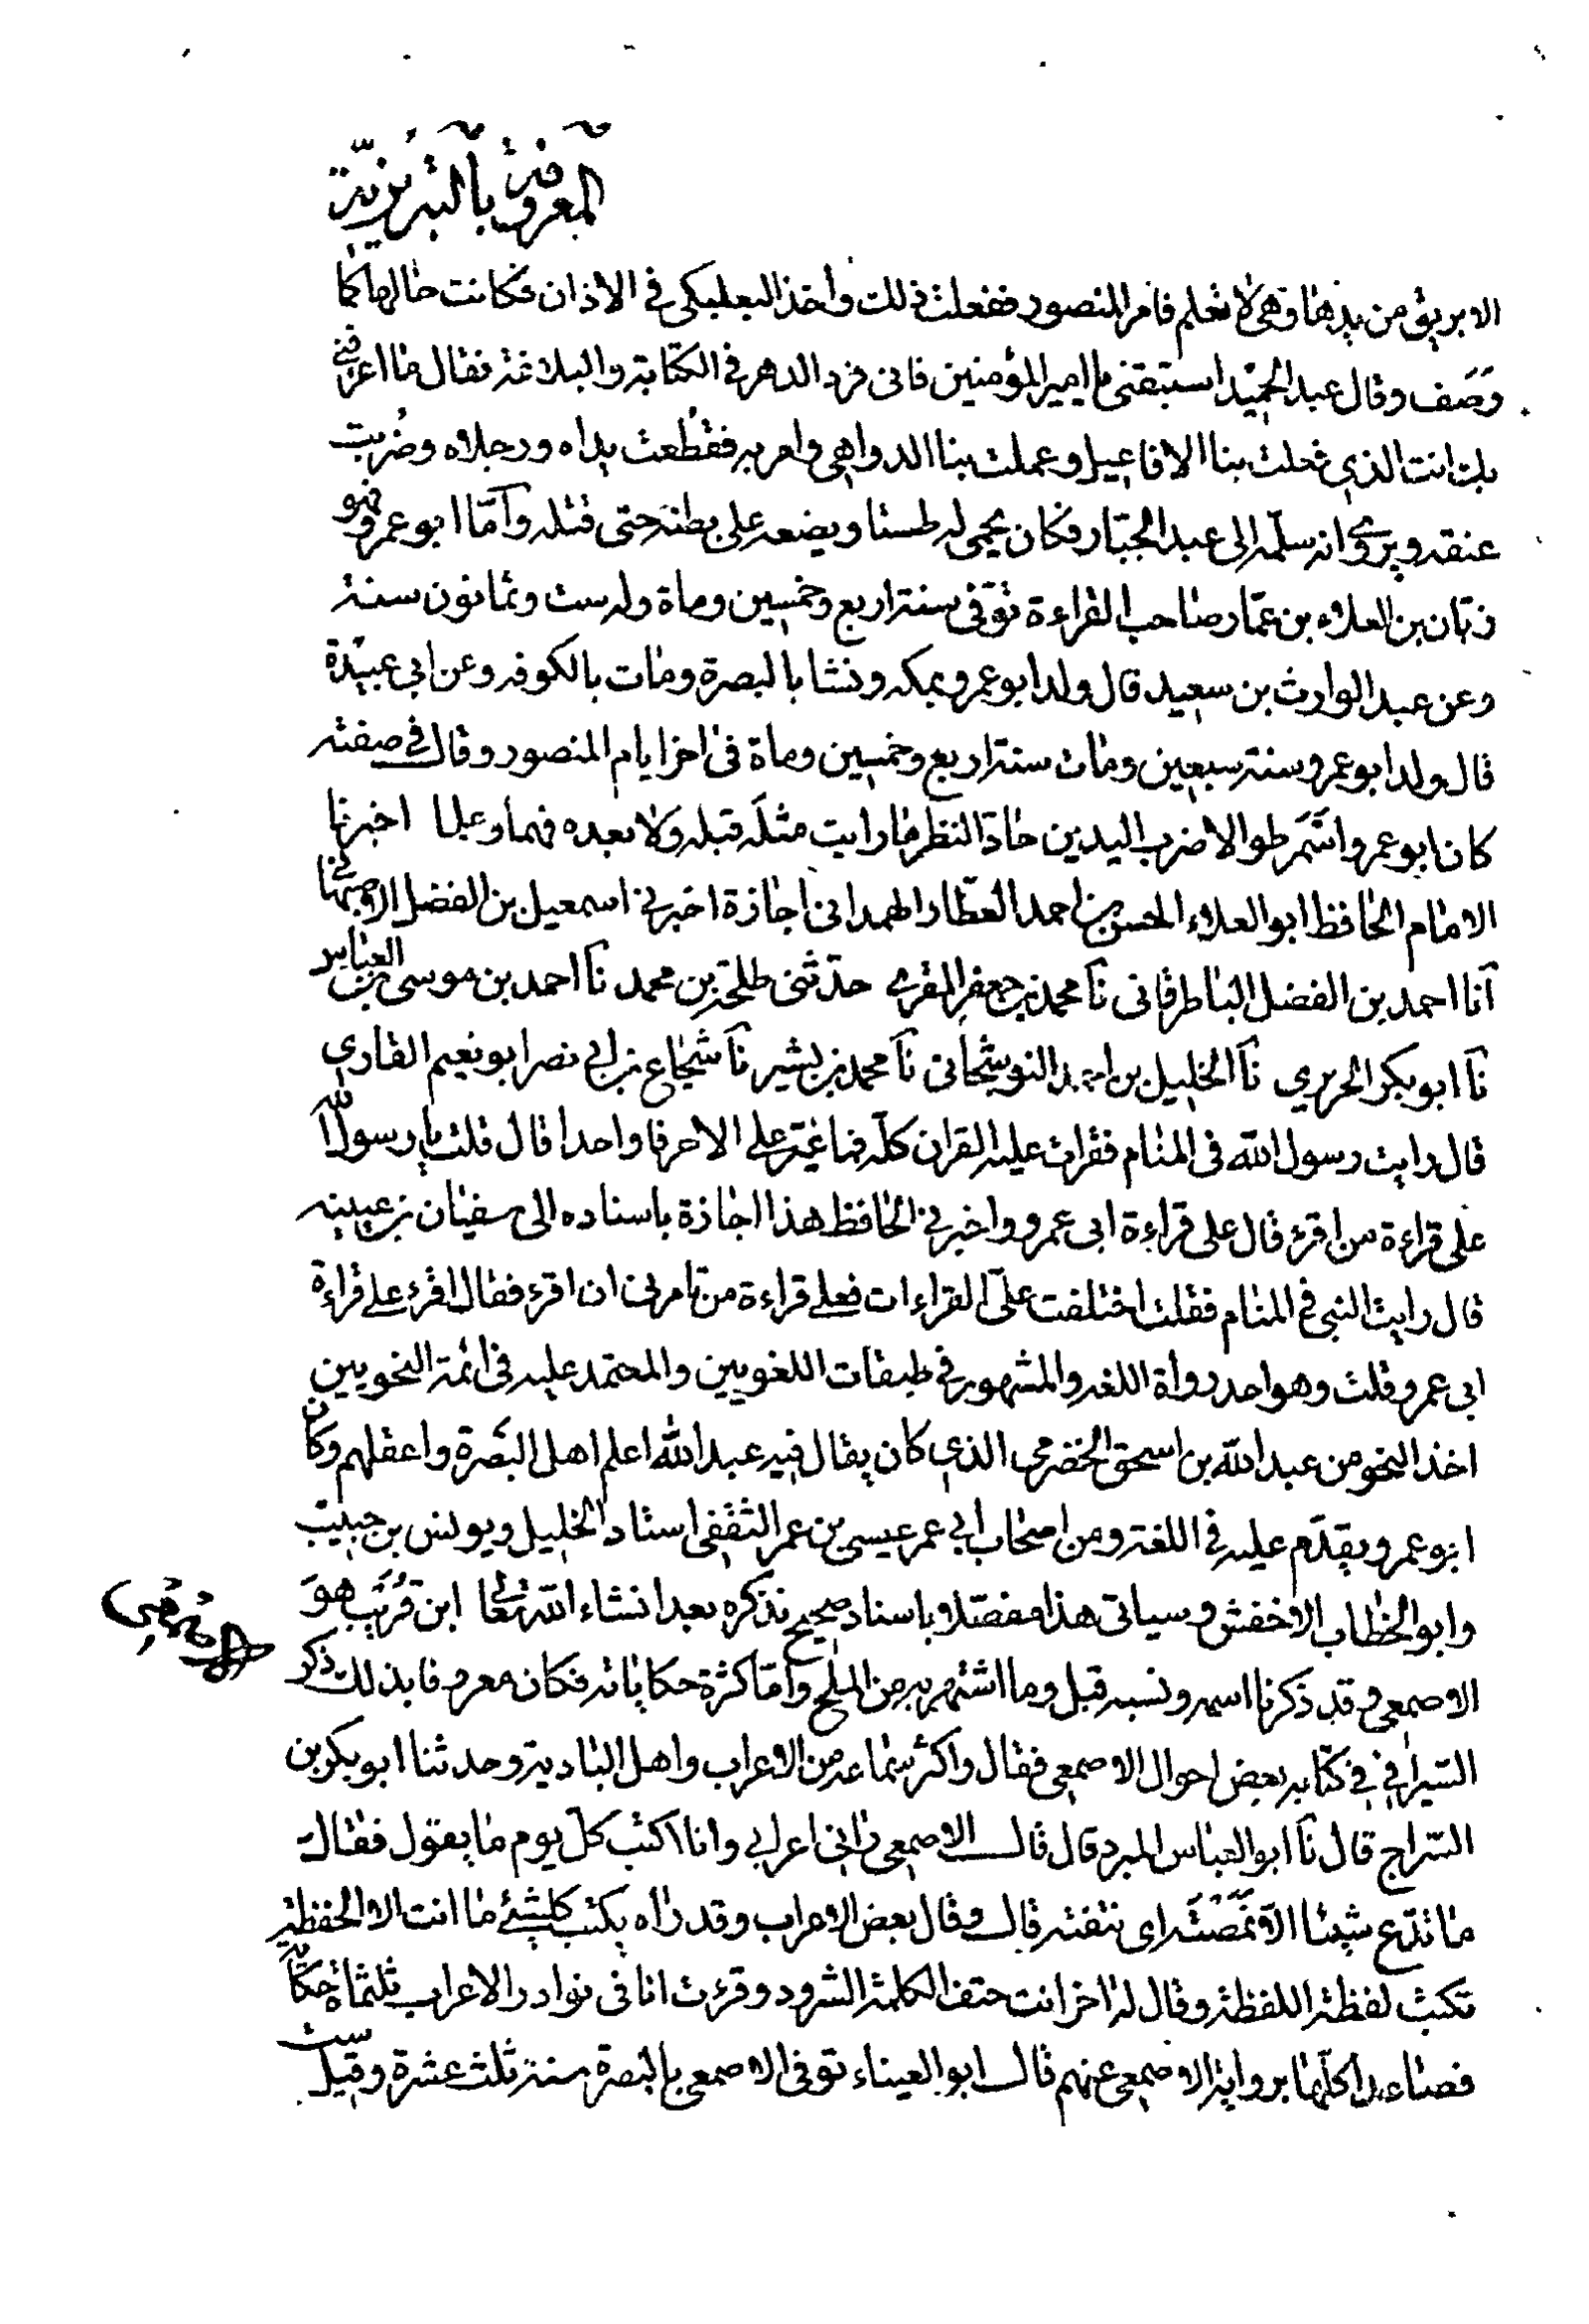 المعروفة بالتبريزية
الابريق من يدها وهى لا تعلم فامر المنصور ففعلت ذلك واخذ البعلبكى فى الاذان فكانت حالها كما
وَصَف وقال عبد الحميد استبقنى يا امير المؤمنين فانى فرد الدهر فى الكتابة والبلاغة فقال ما اعرفنى
بك انت الذى فعلت بنا الافاعيل وعملت بنا الدواهى وامر به فقُطعت يداه ورجلاه وضُربت
عنقه ويروى انه سلّمه الى عبد الجبّار فكان يحمى له طستا ويضعه على بطنه حتى قتله وآمّا ابو عمرو فهو
زبّان بن العلاء بن عمّار صاحب القراءة توّفى سنة اربع وخمسين وماة وله ست وثمانون سنة
وعن عبد الوارث بن سعيد قال ولد ابو عمرو بمكه ونشا بالبصرة ومات بالكوفه وعن ابى عبيدة
قال ولد ابو عمرو سنة سبعين ومات سنة اربع وخمسين وماة فى اخر ايام المنصور وقال فى صفته
كان ابو عمرو اسَمر طوالا ضرب اليدين حادّ النظر ما رايت مثله قبله ولا بعده فهما وعلما اخبرنا
الامام الحافظ ابو العلاء الحسن بن احمد العطّار الهمدانى اجازة اخبرنى اسمعيل بن الفضل الاصبهانى
آنا احمد بن الفضل الباطرقانى نآ محمد بن جعفر المقرى حدّثنى طلحة بن محمد نآ احمد بن موسى بن العباس
نآ ابو بكر الحريري نآ الخليل بن احمد النوشجانى نآ محمد بن بشير نآ شجاع بن ابى نصر ابو نعيم القارى
قال رايت رسول الله فى المنام فقرات عليه القران كلّه فما غيّر علي الا حرفا واحدا قال قلت يا رسول الله
على قراءة من اقرء قال على قراءة ابى عمرو واخبرنى الحافظ هذا اجازة باسناده الى سفيان بن عيينه
قال رايت النبى فى المنام فقلت اختلفت علىّ القراءات فعلى قراءة من تامرنى ان اقرء فقال اقرء على قراءة
ابى عمرو قلت وهو احد رواة اللغه والمشهور فى طبقات اللغويين والمعتمد عليه فى ائمة النحويين
اخذ النحو من عبد الله بن اسحق الحضرمى الذي كان يقال فيه عبد الله اعلم اهل البصَرة واعقلهم وكان
ابو عمرو يقدّم عليه فى اللغة ومن اصحاب ابى عمر عيسى بن عمر الثقفى استاد الخليل ويونس بن حبيب
وابو الخطاب الاخفش وسياتى هذا مفصّلا باسناد صحيح نذكره بعد انشاء الله تعالى ابن قُرَيب هوَ
الاصمعى وقد ذكرنا اسمه ونسبه قبل وما اشتهر به من الملح وامّا كثرة حكاياته فكان معروفا بذلك ذكر
السّيرافى فى كتابه بعض احوال الاصمعى فقال واكثر سماعه من الاعراب واهل البادية وحدثنا ابو بكر بن
السّراج قال نآ ابو العباس المبرد قال قال الاصمعى رانى اعرابى وانا اكتب كلّ يوم ما يقول فقال
ما تدّع شيئا الّا نمَصْتَه اى نتفته قال وقال بعض الاعراب وقد راه يكتب كلشيئ ما انت الا الحفظة
تكتب لفظة اللفظة وقال له اخر انت حتف الكلمة الشرود وقرءت انا فى نوادر الاعراب ثلثماة حكاية
فصاعدا كلّها برواية الاصمعى عنهم قال ابو العيناء توفى الاصمعى بالبصرة سنة ثلث عشرة وقيل ست